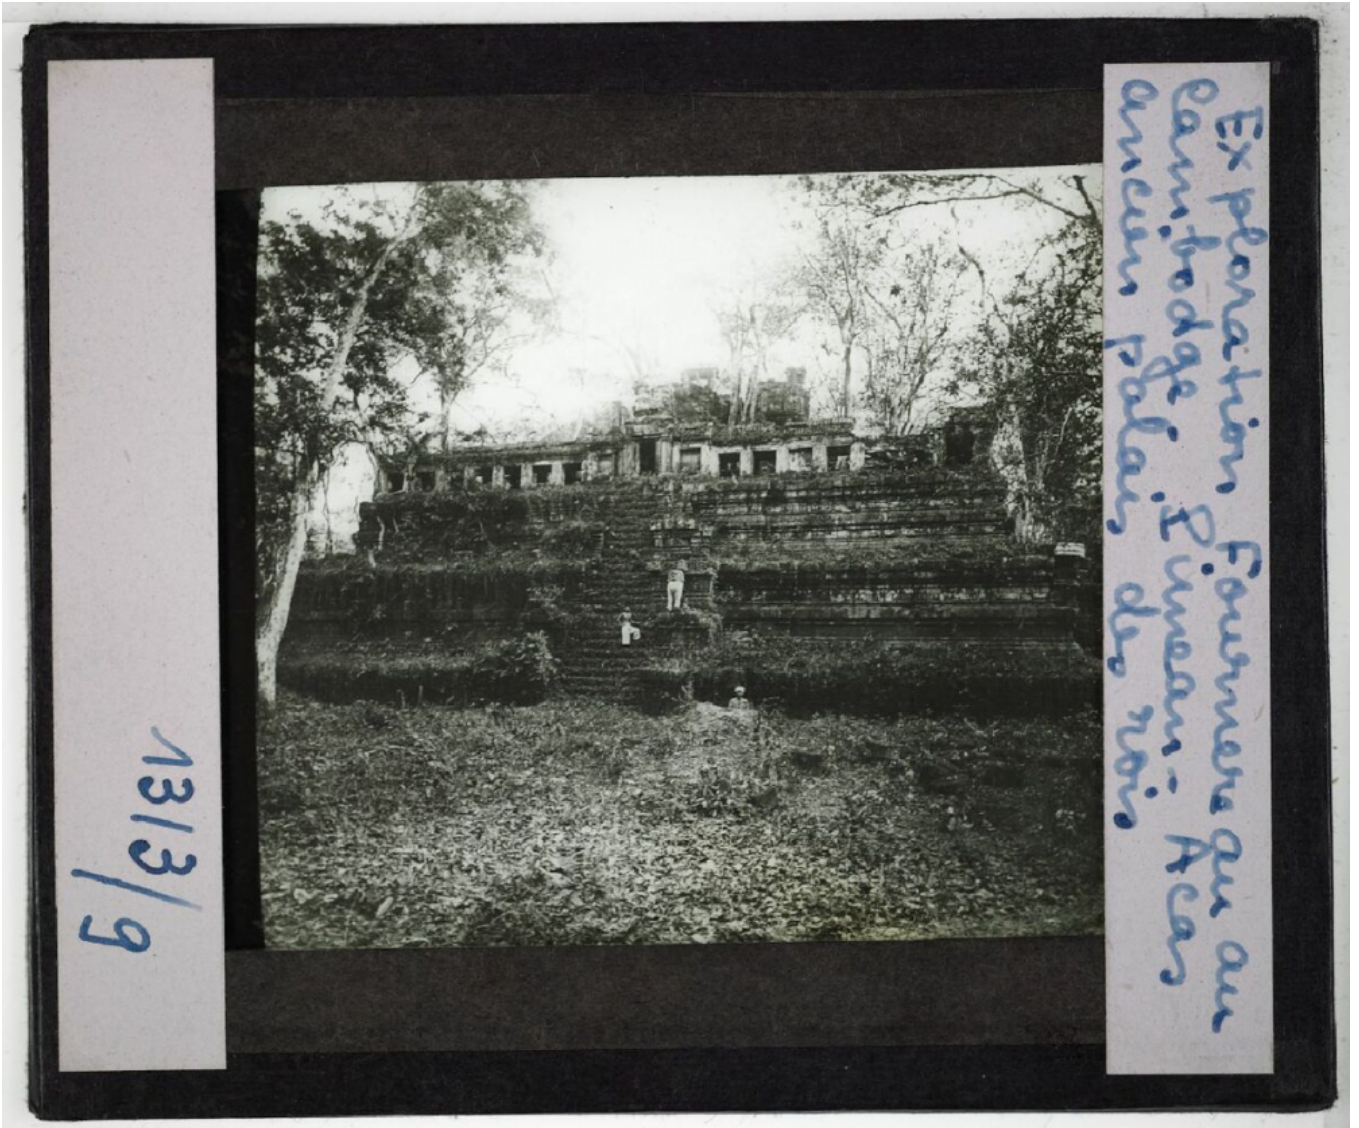 Exploration Fournereau au
Cambodge Pimean-Acas
ancien palais des rois
1313/9